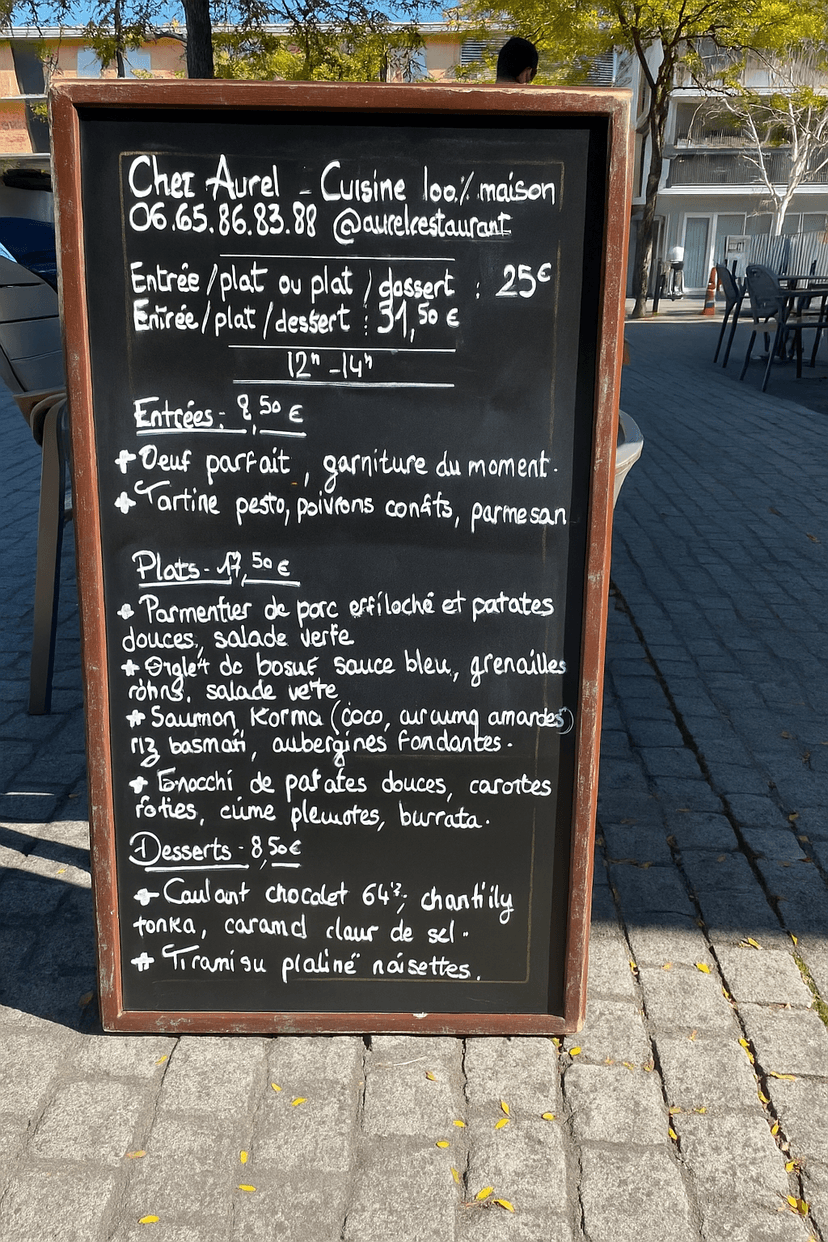 Chez Aurel - Cuisine 100% maison
06.65.86.83.88 @aurelrestaurant
Entrée/plat ou plat/dessert : 25€
Entrée/plat/dessert : 31,50 €
12h -14h
Entrées: 8,50 €
+ Oeuf parfait, garniture du moment.
+ Tartine pesto, poivrons confits, parmesan
Plats - 17,50 €
+ Parmentier de porc effiloché et patates
douces, salade verte
+ Onglet de boeuf sauce bleu, grenailles
salade verte
+ Saumon Korma (coco, curcuma amandes)
riz basmati, aubergines fondantes.
+ Gnocchi de patates douces, carottes
rôties, crème pleurotes, burrata.
Desserts - 8,50€
+ Coulant chocolat 64%, chantilly
tonka, caramel fleur de sel.
+ Tiramisu praliné noisettes.